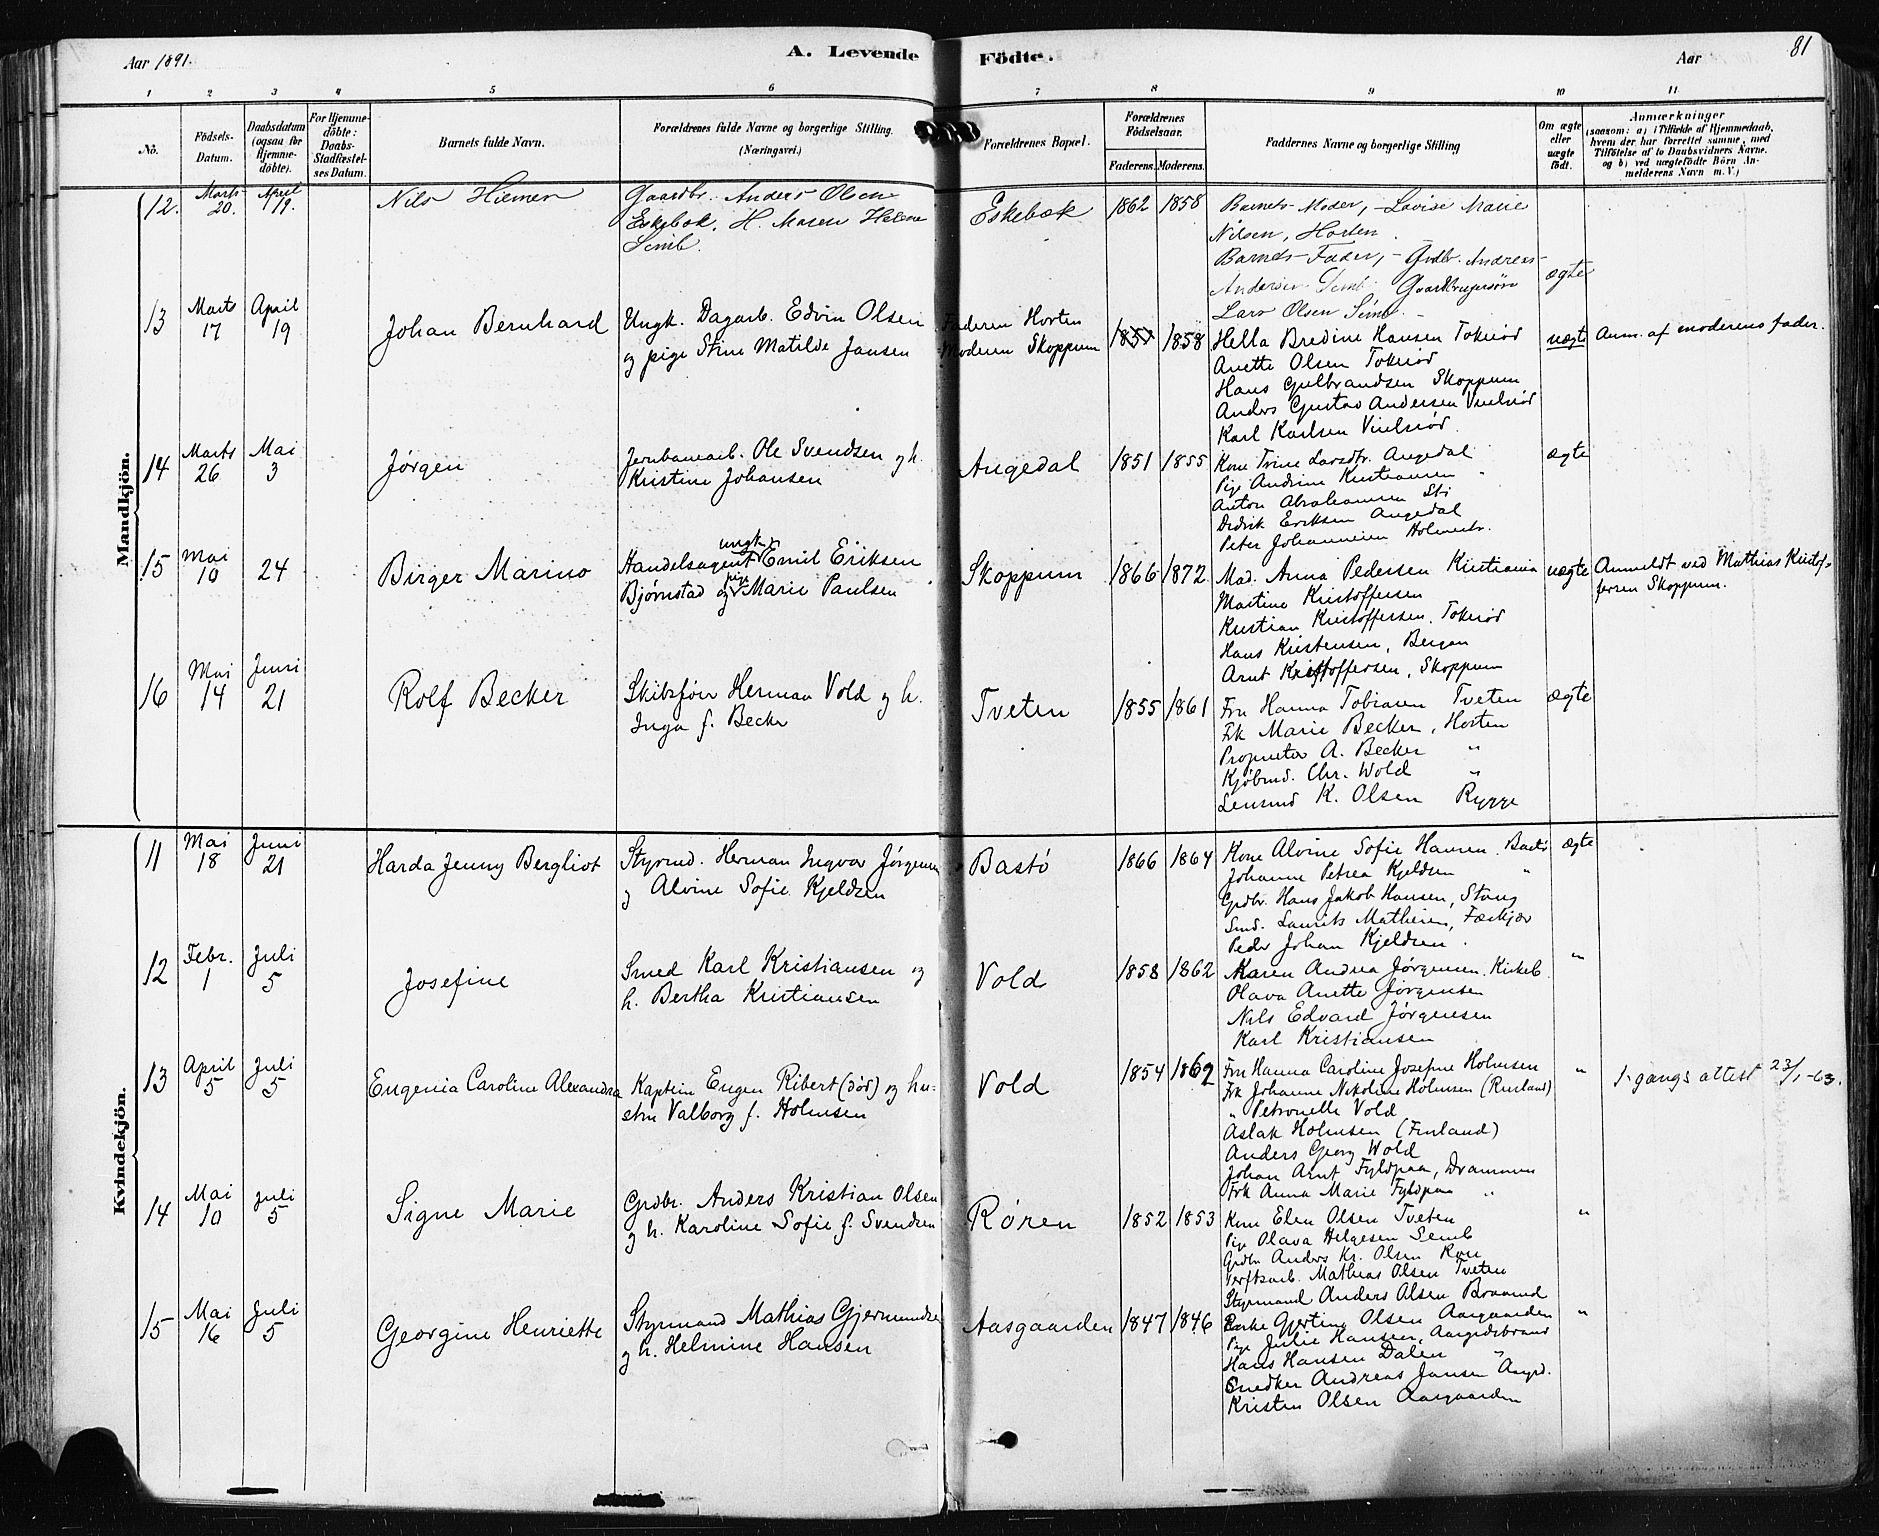 Aar 1891.
A. Levende Födte.
Aar
81
1 2 3 4 5 6 7 8 9 10 11
No.
Födsels-
Datum.
Daabsdatum
(ogsaa for
Hjemme-
döbte).
For Hjemme-
döbte:
Daabs-
Stadfæstel-
ses Datum.
Barnets fulde Navn.
Forældrenes fulde Navne og borgerlige Stilling.
(Næringsvei.)
Forældrenes Bopæl.
Forældrenes
Födselsaar.
Faderens. Moderens.
Faddernes Navne og borgerlige Stilling
Om ægte
eller
uægte
födt.
Anmærkninger
(saasom: a) i Tilfælde af Hjemmedaab,
hvem der har forrettet samme, med
Tilföielse af to Daabsvidners Navne.
og b) ved uægtefödte Börn An-
melderens Navn m. V.)
Mandkjön.
12. Marts 20. April 19. Nils Hiemer
Gaardbr. Anders Olsen
Eskebæk, H. Maren Helene
Semb.
Eskebæk 1862 1858
Barnets Moder, - Lovise Marie
Nilsen, Horten.
Barnets Fader, - Grdbr. Andreas
Andersen Semb, Gaardbrugersøn
Lars Olsen Semb.
ægte
13 Marts 17 April 19 Johan Bernhard
Ungk. Dagarb. Edvin Olsen
og pige Stine Matilde Jansen
Faderen Horten
Moderen Skoppum
1858
Hella Bredine Hansen Tokerød
Anette Olsen Tokerød
Hans Gulbrandsen Skoppum
Anders Gustav Andersen Viulsrød
Karl Karlsen Viulsrød.
uægte Anm. af moderens fader.
14 Marts 26 Mai 3 Jørgen
Jernbanearb. Ole Svendsen og h.
Kristine Johansen
Angedal 1851 1855
Kone Trine Larsdtr. Angedal
Pige Andrine Kristiansen "
Anton Abrahamsen Sti
Didrik Eriksen Angedal
Peter Johannesen Holmestr.
ægte
15 Mai 10 24 Birger Marino
Handelsagent ungk. Emil Eriksen
Bjørnstad og pige Marie Paulsen
Skoppum 1866 1872
Mad. Anna Pedersen Kristiania
Martine Kristoffersen
Kristian Kristoffersen, Tokerød
Hans Kristensen, Bergan
Arnt Kristoffersen, Skoppum
uægte Anmeldt ved Mathias Kristof-
fersen Skoppum.
16 Mai 14 Juni 21 Rolf Becker
Skibsfører Herman Vold og h.
Inga f. Becker
Tveten 1855 1861
Fru Hanna Tobiasen Tveten
Frk Marie Becker, Horten
Proprietær A. Becker "
Kjøbmd. Chr. Wold "
Lensmd K. Olsen Rygge
ægte
Kvindekjön.
11 Mai 18 Juni 21 Harda Jenny Bergliot
Styrmd. Herman Ingvar Jørgensen
og Alvine Sofie Kjeldsen
Bastö 1866 1864
Kone Alvine Sofie Hansen Bastö
Johanne Petrea Kjeldsen "
Grdbr. Hans Jakob Hansen, Stang
Smd. Laurits Mathisen,
Peder Johan Kjeldsen.
ægte
12 Febr. 1 Juli 5 Josefine
Smed Karl Kristiansen og
h. Bertha Kristiansen
Vold 1858 1862
Maren Andrea Jørgensen, Kirkeb.
Olava Anette Jørgensen
Nils Edvard Jørgensen
Karl Kristiansen
"
13 April 5 Juli 5 Eugenia Caroline Alexandra
Kaptein Eugen Ribert (død) og hu-
stru Valborg f. Holmsen
Vold 1854 1862
Fru Hanna Caroline Josefine Holmsen
Frk Johanne Nikoline Holmsen (Rusland)
" Petronelle Vold
Aslak Holmsen (Finland)
Anders Georg Wold
Johan Arnt Fyldpaa, Drammen
Frk Anna Marie Fyldpaa "
" 1. gangs attest 23/1-63.
14 Mai 10 Juli 5 Signe Marie
Grdbr. Anders Kristian Olsen
og h. Karoline Sofie f. Svendsen
Røren 1852 1853
Kone Elen Olsen Tveten
Pige Olava Helgesen Semb
Grdbr Anders Kr. Olsen Røren
Verftsarb. Mathias Olsen Tveten
Styrmand Anders Olsen
"
15 Mai 16 Juli 5 Georgine Henriette
Styrmand Mathias Gjermundsen
og h. Helmine Hansen
Aasgaarden 1847 1846
Enke Gjertine Olsen Aasgaarden
Pige Julie Hansen, Aasgrdsstrand
Hans Hansen Dalen "
Snedker Andreas Jansen Aasgrd.
Kristen Olsen Aasgaarden
"